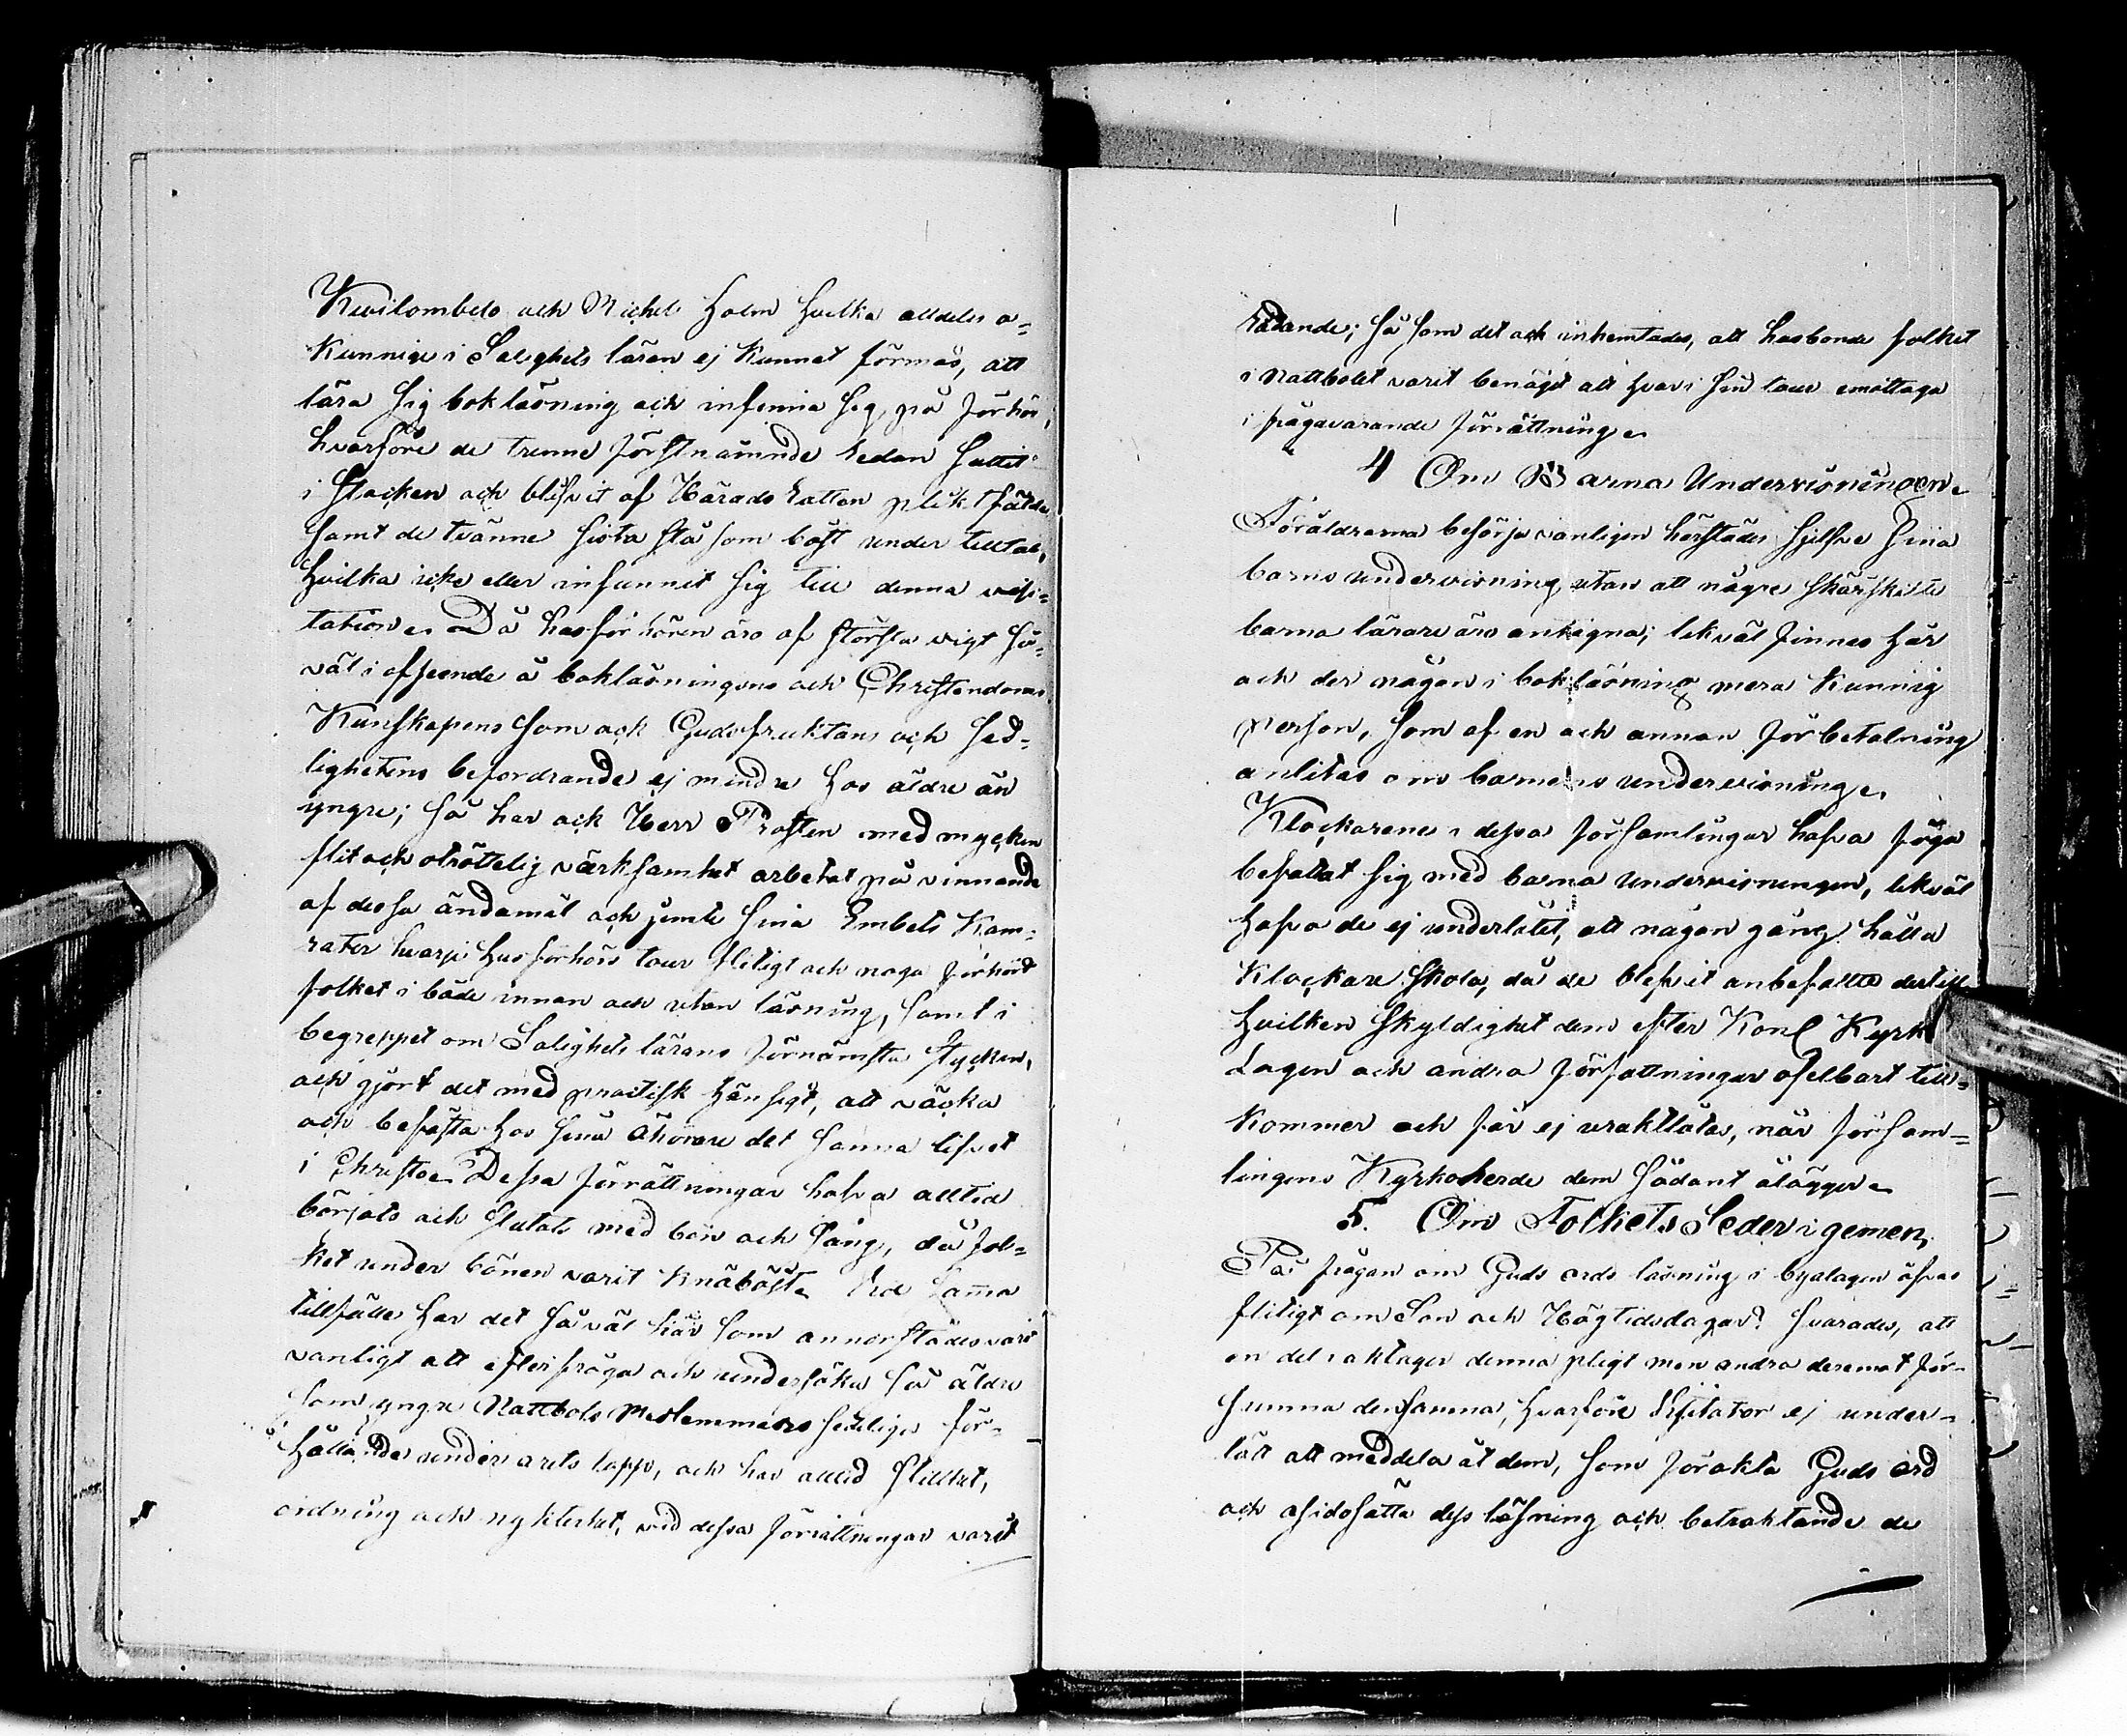 Kwilombelo och Michel Holm hvilka alldeles o=
kunnige i Salighets läran ej kunnat förmås, att
lära sig bokläsning och infinna sig på förhör,
hvarföre de trenne förstnämnde redan suttit
i Stocken och blifvit af Härads Rätten pliktfälde
samt de tvänne sista stå som bäst under tilltal,
hvilka icke eller infunnit sig till denna visi=
tation. Då husförhören äro af största vigt så=
väl i afseende å bokläsningens och Christendoms
Kunskapens som ock Gudsfruktans och Sed=
lighetens befordrande ej mindre hos äldre än
yngre; så har ock Herr Prosten med mycken
flit och otröttelig värksamhet arbetat på vinnande
af dessa ändamål och jemte sina Embets Kam=
rater hvarje husförhörs tour flitigt och noga förhört
folket i både innan och utan läsning, samt i
begreppet om Salighets lärans förnämsta stycken,
och gjort det med practisk hänsigt, att väcka
och befästa hos sina åhörare det sanna lifvet
i Christo. Dessa förrättningar hafva alltid
börjats och slutats med bön och sång, då fol=
ket under bönen varit knäböjt. Vid samma
tillfälle har det såväl här som annorstädes varit
vanligt att efterfråga och undersöka så äldre
som yngre Nattbols medlemmars sedeliga för=
hållande under årets lopp, och har alltid stillhet,
ordning och nykterhet, vid dessa förrättningar varit
rådande; så som det ock inhemtades, att husbonde folket
i Nattbolet varit benäget att hvar i sin tour emottaga
i frågavarande förrättning.
4 Om Barna Undervisningen.
Föräldrarna besörja vanligen härstädes sjelfve sina
barns undervisning, utan att någre särskilte
barna lärare äro antagna; likväl finnes här
och der någon i bokläsning mera kunnig
person, som af en och annan för betalning
anlitas om barnens undervisning.
Klockarene i dessa församlingar hafva föga
befattat sig med barna undervisningen, likväl
hafva de ej underlåtet, att någon gång hålla
Klockare skola, då de blefvit anbefallte dertill
hvilken skyldighet dem efter Kongl Kyrk
Lagen och andra författningar ofelbart till=
kommer och får ej uraktlåtas, när försam=
lingens Kyrkoherde dem sådant ålägger.
5. Om Folkets Seder i gemen.
På frågan om Guds ords läsning i byalagen öfvas
flitigt om Sön och Högtidsdagar? svarades, att
en del iakttager denna pligt men andra deremot för=
summa densamma, hvarföre Visitator ej under=
lätt att meddela åt dem, som förakta Guds ord
och åsidosätta dess läsning och betraktande de